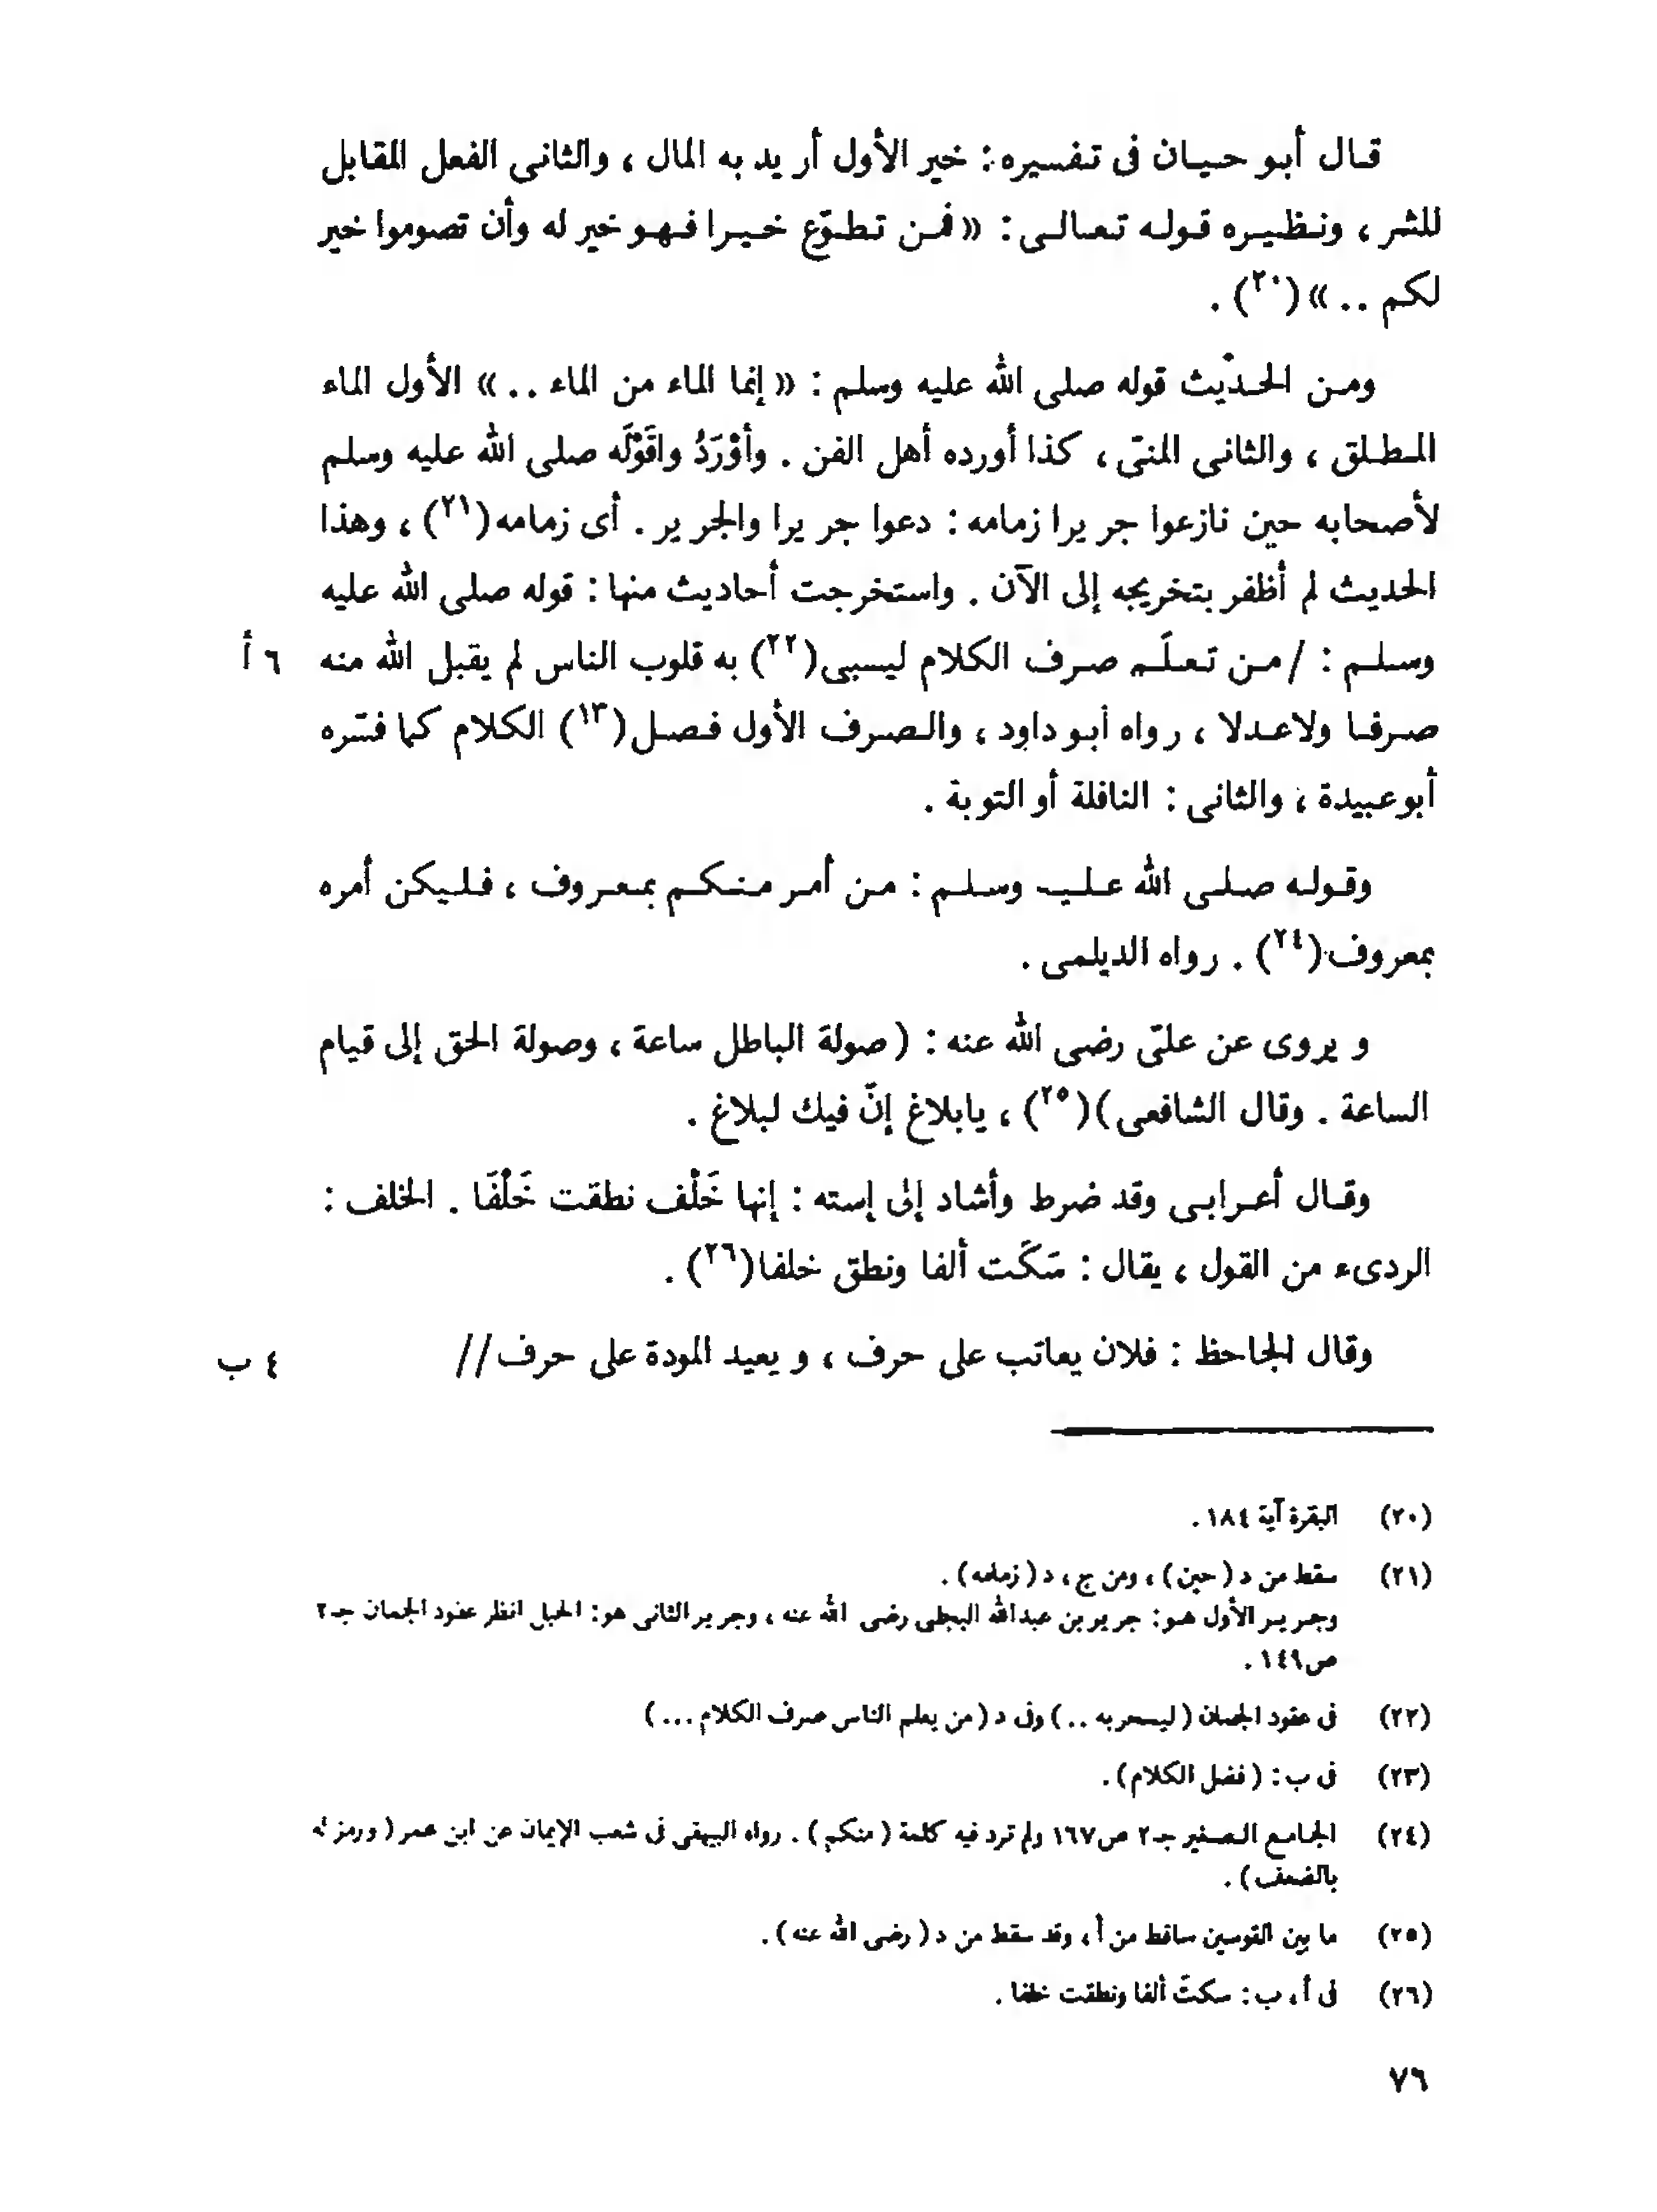 قال أبو حيان فى تفسيره: خير الأول أريد به المال ، والثانى الفعل المقابل
للشر ، ونظيره قوله تعالى : «فمن تطوّع خيرا فهو خير له وأن تصوموا خير
لكم .. »(٢٠) .
ومن الحديث قوله صلى الله عليه وسلم : « إنما الماء من الماء .. » الأول الماء
المطلق ، والثانى المنىّ ، كذا أورده أهل الفن . وأوْرَدُ واقَوْلَه صلى الله عليه وسلم
لأصحابه حين نازعوا جريرا زمامه : دعوا جريرا والجرير . أى زمامه(٢١) ، وهذا
الحديث لم أظفر بتخريجه إلى الآن . واستخرجت أحاديث منها : قوله صلى الله عليه
وسلم : / من تعلّم صرف الكلام ليسبى(٢٢) به قلوب الناس لم يقبل الله منه ٦ أ
صرفا ولاعدلا ، رواه أبو داود ، والصرف الأول فصل(١٣) الكلام كما فسّره
أبوعبيدة ، والثانى : النافلة أو التوبة .
وقوله صلى الله عليه وسلم : من أمر منكم بمعروف ، فليكن أمره
بمعروف(٢٤) . رواه الديلمى .
ويروى عن علىّ رضى الله عنه : ( صولة الباطل ساعة ، وصولة الحق إلى قيام
الساعة . وقال الشافعى)(٢٥) ، يابلاغ إنّ فيك لبلاغ .
وقال أعرابى وقد ضرط وأشاد إلى إسته : إنها خَلْف نطقت خَلْفَا . الخلف :
الردىء من القول ، يقال : سَكَت ألفا ونطق خلفا(٢٦) .
وقال الجاحظ : فلان يعاتب على حرف ، ويعيد المودة على حرف// ٤ ب
(٢٠) البقرة آية ١٨٤ .
(٢١) سقط من د ( حين ) ، ومن ج ، د ( زمامه ) .
وجرير الأول هو : جرير بن عبدالله البجلى رضى الله عنه ، وجرير الثانى هو : الحبل انظر عقود الجمان جـ٢
ص١٤٩ .
(٢٢) فى عقود الجمان ( ليسحر به .. ) وفى د ( من يعلم الناس صرف الكلام ... )
(٢٣) فى ب : ( فضل الكلام ) .
(٢٤) الجامع الصغير جـ٢ ص١٦٧ ولم ترد فيه كلمة ( منكم ) . رواه البيهقى فى شعب الإيمان عن ابن عمر ( ورمز له
بالضعف ) .
(٢٥) ما بين القوسين ساقط من أ ، وقد سقط من د ( رضى الله عنه ) .
(٢٦) فى أ ، ب : سكتّ ألفا ونطقت خلفا .
٧٦